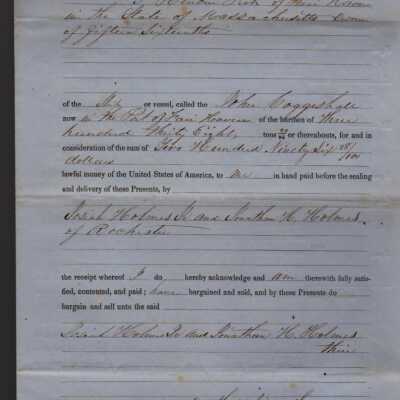 in the State of Massachusetts Owner
of fifteen Sixteenths
of the Ship or vessel, called the John Coggeshall
now in the Port of Fair Haven of the burthen of three
hundred thirty Eight, tons or thereabouts, for and in
consideration of the sum of Two Hundred Ninety Six /100
dollars
lawful money of the United States of America, to me in hand paid before the sealing
and delivery of these Presents, by
Josiah Holmes Jr. and Jonathan H. Holmes
of Rochester
the receipt whereof I do hereby acknowledge and am therewith fully satis-
fied, contented, and paid; have bargained and sold, and by these Presents do
bargain and sell unto the said
Josiah Holmes Jr and Jonathan H. Holmes